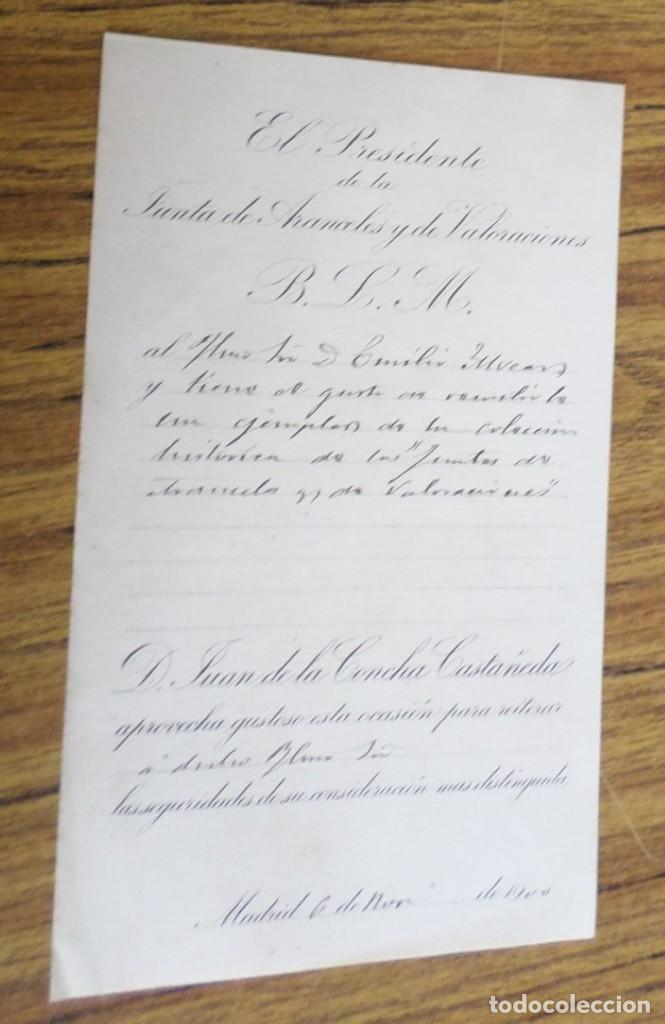 El Presidente
de la
Junta de Aranceles y de Valoraciones
B. L. M.
al Ilmo Sr D Emilio
y tiene el gusto de remitirle
un ejemplar de la coleccion
historica de las "Juntas de
Aranceles y de Valoraciones"
D. Juan de la Concha Castañeda
aprovecha gustoso esta ocasión para reiterar
á dicho Ilmo Sr
las seguridades de su consideración mas distinguida.
Madrid 6 de Nov. de 1900
todocoleccion